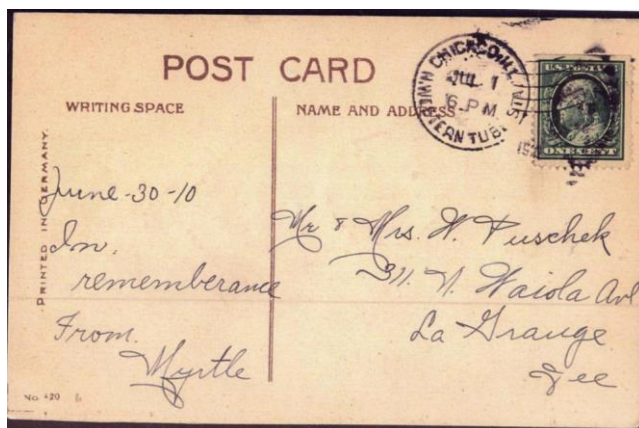 POST CARD
WRITING SPACE
NAME AND ADDRESS
CHICAGO, ILL.
JUL 1
6-PM
U.S. POSTAGE
ONE CENT
PRINTED IN GERMANY.
June-30-10
In.
rememberance
From.
Myrtle
Mr & Mrs. H. Puschek
311. N. Waiola Ave
La Grange
No. 420